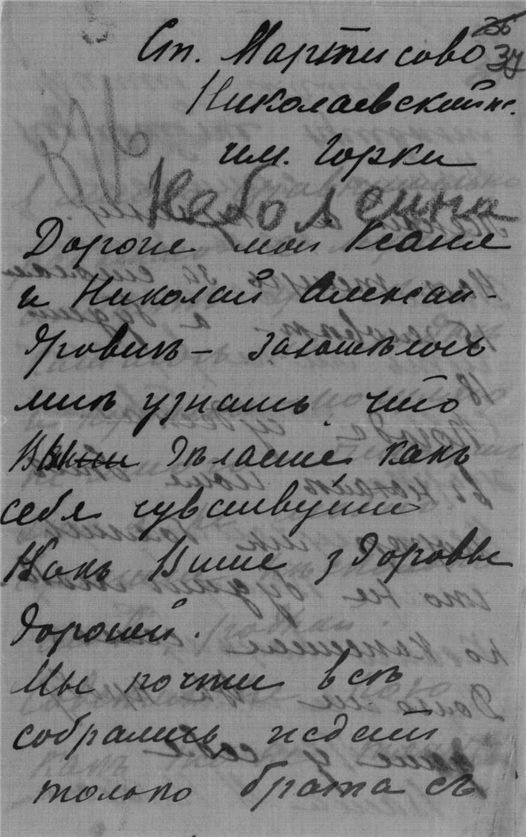 36
34
Ст. Мартысово
Николаевский
им. Горки
Неболсина
Дорогие мои Ксаня
и Николай Алексан-
дровичъ — захотѣлось
мнѣ узнать что
Вы дѣлаете какъ
себя чувствуете
Какъ Ваше здоровье
дорогой.
Мы почти всѣ
собрались ждем
только брата съ